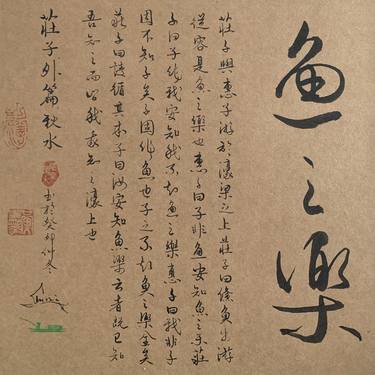 魚之樂
莊子與惠子游於濠梁之上莊子曰儵魚出游
從容是魚之樂也惠子曰子非魚安知魚之樂莊
子曰子非我安知我不知魚之樂惠子曰我非子
固不知子矣子固非魚也子之不知魚之樂全矣
莊子曰請循其本子曰汝安知魚樂云者既已知
吾知之而問我我知之濠上也
莊子外篇秋水
書於癸卯仲冬